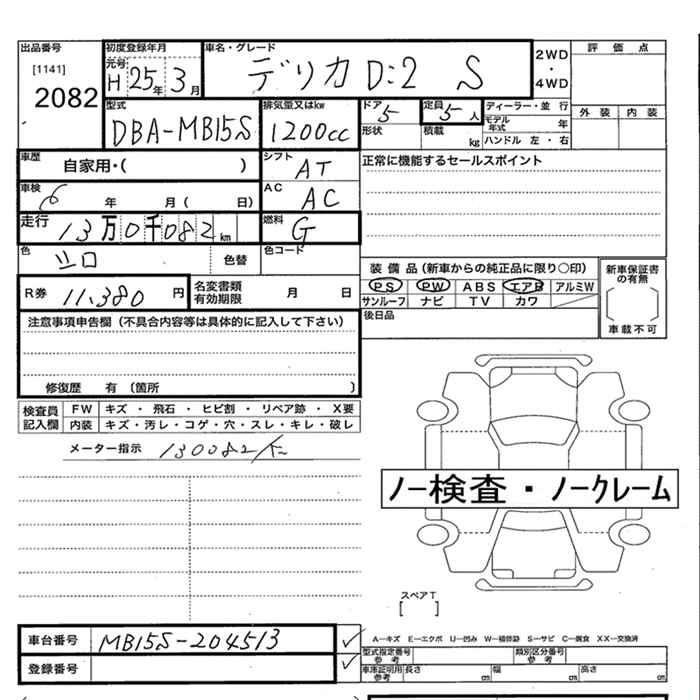 出品番号 [1141] 2082
初度登録年月 元号 H 25年 3月
車名・グレード デリカ D:2 S
2WD ・ 4WD
評価点
外装 内装
型式 DBA-MB15S
排気量又はkw 1200cc
ドア 5
定員 5人
形状
積載 kg
ディーラー・並行
モデル年式 年
ハンドル 左・右
車歴 自家用・( )
シフト AT
正常に機能するセールスポイント
車検 年 月( 日)
AC AC
走行 13万0千082km
燃料 G
色 シロ 色替
色コード
R券 11,380円
名変書類有効期限 月 日
装備品(新車からの純正品に限り○印)
PS PW ABS エアB アルミW
サンルーフ ナビ TV カワ
新車保証書の有無
車載不可
後日品
注意事項申告欄(不具合内容等は具体的に記入して下さい)
修復歴 有(箇所 )
検査員記入欄
FW キズ・飛石・ヒビ割・リペア跡・X要
内装 キズ・汚レ・コゲ・穴・スレ・キレ・破レ
メーター指示 130082
ノー検査・ノークレーム
スペアT
[ ]
車台番号 MB15S-204513
登録番号
A―キズ E―エクボ U―凹み W―補修跡 S―サビ C―腐食 XX―交換済
型式指定番号 参考
類別区分番号 参考
車庫証明用参考 長さ cm 幅 cm 高さ cm